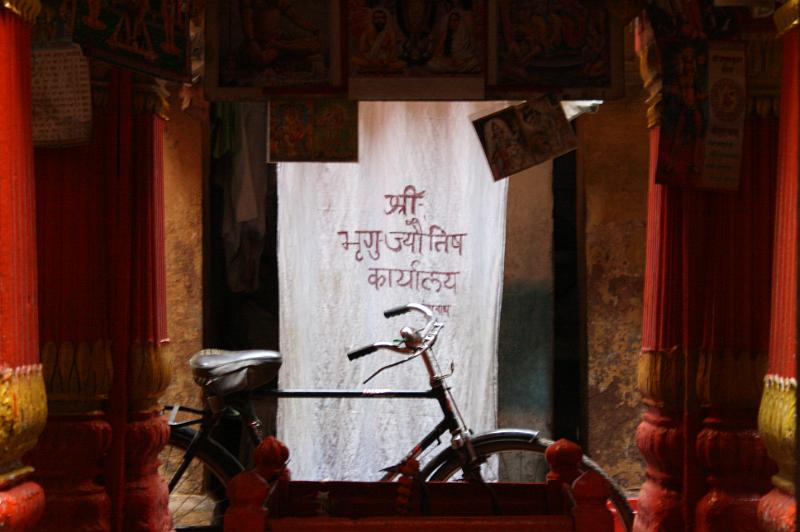 श्री
भृगु-ज्यौतिष
कार्यालय